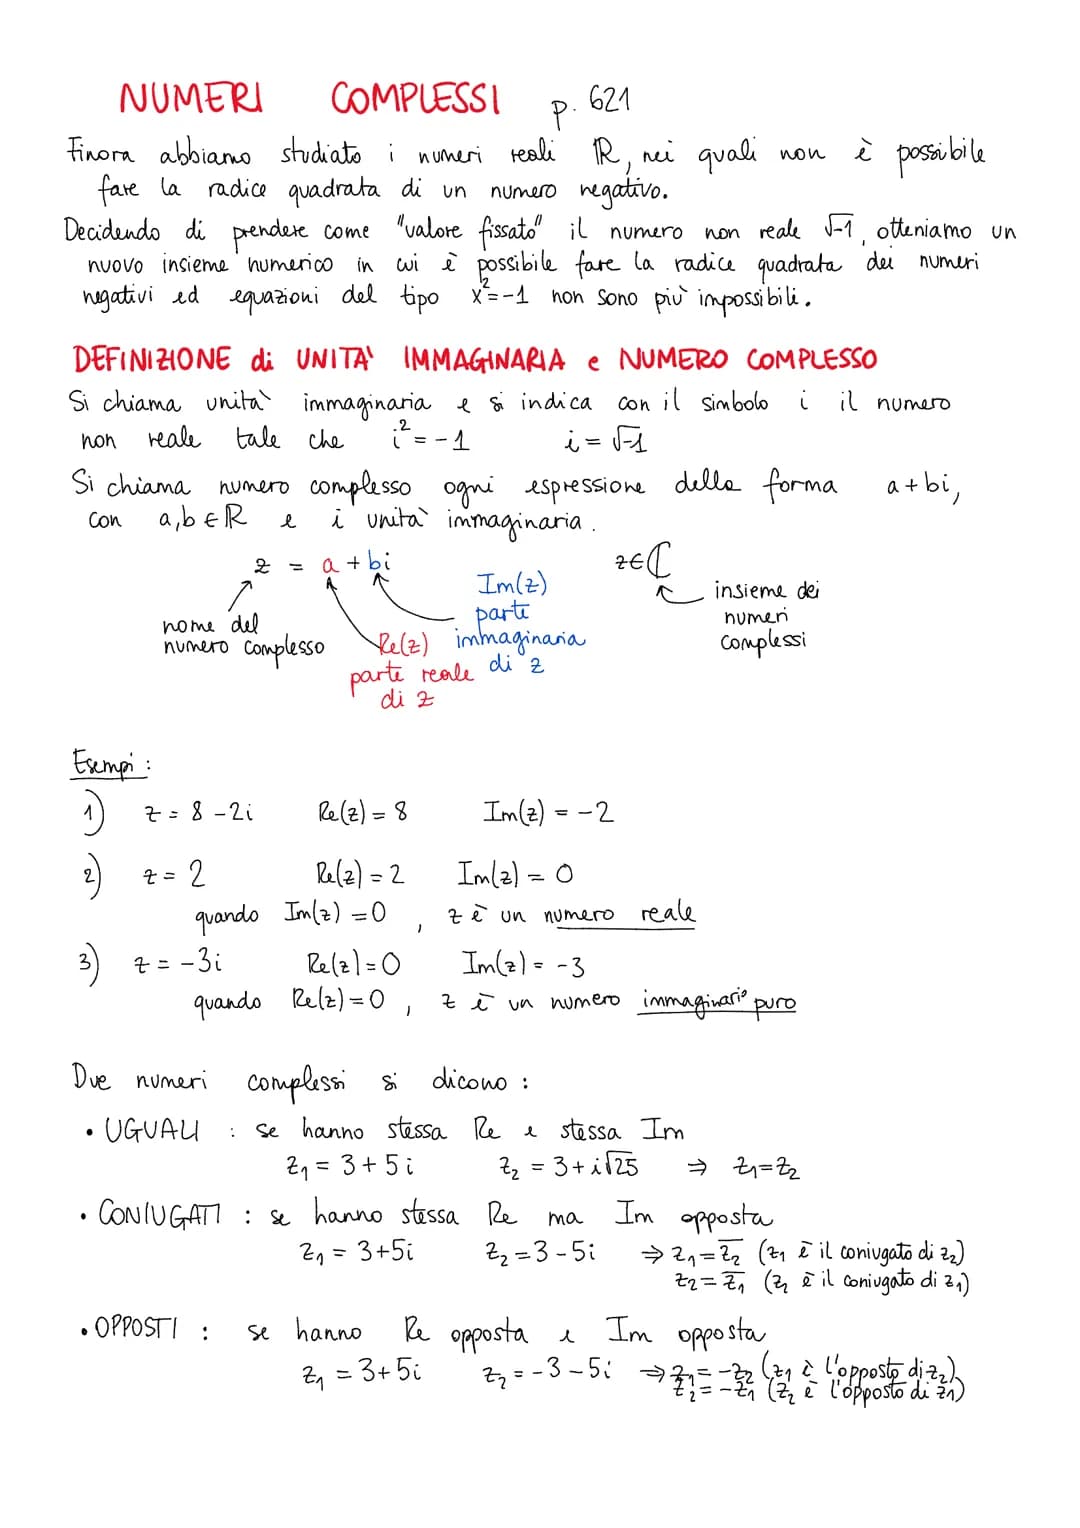 NUMERI COMPLESSI p. 621
Finora abbiamo studiato i numeri reali ℝ, nei quali non è possibile
fare la radice quadrata di un numero negativo.
Decidendo di prendere come "valore fissato" il numero non reale √-1, otteniamo un
nuovo insieme numerico in cui è possibile fare la radice quadrata dei numeri
negativi ed equazioni del tipo x²=-1 non sono più impossibili.
DEFINIZIONE di UNITA' IMMAGINARIA e NUMERO COMPLESSO
Si chiama unità immaginaria e si indica con il simbolo i il numero
non reale tale che i² = -1 i = √-1
Si chiama numero complesso ogni espressione della forma a+bi,
con a,b ∈ ℝ e i unità immaginaria.
z = a + bi z∈ℂ
nome del
numero complesso
Re(z)
parte reale
di z
Im(z)
parte
immaginaria
di z
insieme dei
numeri
complessi
Esempi:
1) z = 8 - 2i Re(z) = 8 Im(z) = -2
2) z = 2 Re(z) = 2 Im(z) = 0
quando Im(z) = 0, z è un numero reale
3) z = -3i Re(z) = 0 Im(z) = -3
quando Re(z) = 0, z è un numero immaginario puro
Due numeri complessi si dicono:
• UGUALI : se hanno stessa Re e stessa Im
z₁ = 3 + 5i z₂ = 3 + i√25 ⇒ z₁=z₂
• CONIUGATI : se hanno stessa Re ma Im opposta
z₁ = 3+5i z₂ = 3 - 5i ⇒ z₁ = z̅₂ (z₁ è il coniugato di z₂)
z₂ = z̅₁ (z₂ è il coniugato di z₁)
• OPPOSTI : se hanno Re opposta e Im opposta
z₁ = 3+5i z₂ = -3 - 5i ⇒ z₁ = -z₂ (z₁ è l'opposto di z₂)
z₂ = -z₁ (z₂ è l'opposto di z₁)